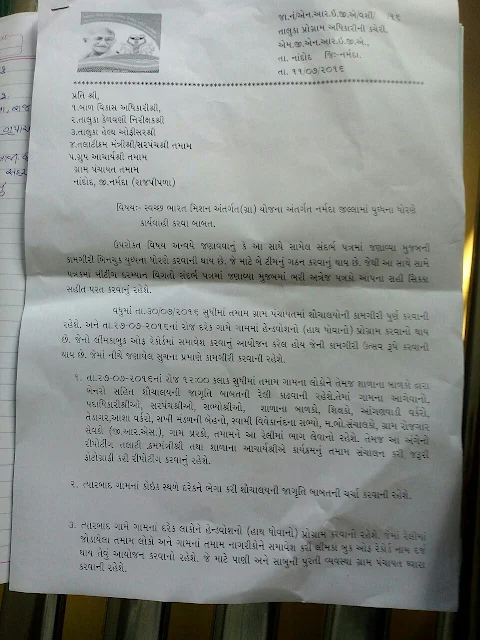 જા.નં/એન.આર.ઇ.જી.એ/વશી
તાલુકા પ્રોગ્રામ અધિકારીની કચેરી,
એમ.જી.એન.આર.ઇ.જી.એ.,
તા. નાંદોદ જિ-નર્મદા.
તા. ૧૧/૦૭/૨૦૧૬
પ્રતિ શ્રી,
૧.બાળ વિકાસ અધિકારીશ્રી,
૨.તાલુકા કેળવણી નિરીક્ષકશ્રી
૩.તાલુકા હેલ્થ ઓફીસરશ્રી
૪.તલાટીકમ મંત્રીશ્રી/સરપંચશ્રી તમામ
૫.ગ્રુપ આચાર્યશ્રી તમામ
ગ્રામ પંચાયત તમામ
નાંદોદ, જી.નર્મદા (રાજપીપળા)
વિષય:- સ્વચ્છ ભારત મિશન અંતર્ગત(ગ્રા) યોજના અંતર્ગત નર્મદા જીલ્લામાં યુધ્ધના ધોરણે
કાર્યવાહી કરવા બાબત.
ઉપરોક્ત વિષય અન્વયે જણાવવાનું કે આ સાથે સામેલ સંદર્ભ પત્રમાં જણાવ્યા મુજબની
કામગીરી બિનચુક યુધ્ધના ધોરણે કરવાની થાય છે. જે માટે બે ટીમનું ગઠન કરવાનું થાય છે. જેથી આ સાથે સામે
પત્રકમાં મીટીંગ દરમ્યાન વિગતો સંદર્ભ પત્રમાં જણાવ્યા મુજબમાં ભરી અત્રેજ પત્રકો આપના સહી સિક્કા
સહીત પરત કરવાનું રહેશે.
વધુમાં તા.૩૦/૦૭/૨૦૧૬ સુધીમાં તમામ ગ્રામ પંચાયતમાં શૌચાલયોની કામગીરી પુર્ણ કરવાની
રહેશે. અને તા.૨૭-૦૭-૨૦૧૬નાં રોજ દરેક ગામે ગામમાં હેન્ડવોશનો (હાથ ધોવાનો) પ્રોગ્રામ કરવાનો થાય
છે. જેનો લીમકાબુક ઓફ રેકોર્ડમાં સમાવેશ કરવાનું આયોજન કરેલ હોય જેની કામગીરી ઉત્સવ રૂપે કરવાની
થાય છે. જેમાં નીચે જણાવેલ સુચના પ્રમાણે કામગીરી કરવાની રહેશે.
૧. તા.૨૭-૦૭-૨૦૧૬નાં રોજ ૧૨:૦૦ કલાક સુધીમાં તમામ ગામના લોકોને તેમજ શાળાના બાળકો દ્વારા
બેનરો સહિત શૌચાલયની જાગૃતિ બાબતની રેલી કાઢવાની રહેશે.તેમાં ગામના આગેવાનો,
પદાધિકારીશ્રીઓ, સરપંચશ્રીઓ, સભ્યોશ્રીઓ, શાળાના બાળકો, શિક્ષકો, આંગણવાડી વર્કરો,
તેડાગર,આશા વર્કરો, સખી મંડળની બેહનો, સ્વામી વિવેકાનંદના સભ્યો, મ.ભો.સંચાલકો, ગ્રામ રોજગાર
સેવકો (જી.આર.એસ.), ગામ પ્રેરકો, તમામને આ રેલીમાં ભાગ લેવાનો રહેશે. તેમજ આ અંગેનો
રીપોર્ટીંગ તલાટી ક્રમમંત્રીશ્રી તથા શાળાના આચાર્યશ્રીએ કાર્યક્રમનું તમામ સંચાલન કરી જરૂરી
ફોટોગ્રાફી કરી રીપોર્ટીંગ કરવાનું રહેશે.
૨. ત્યારબાદ ગામનાં કોઇક સ્થળે દરેકને ભેગા કરી શૌચાલયની જાગૃતિ બાબતની ચર્ચા કરવાની રહેશે.
૩. ત્યારબાદ ગામે ગામનાં દરેક લોકોને હેન્ડવોશનો (હાથ ધોવાનો) પ્રોગ્રામ કરવાનો રહેશે. જેમાં રેલીમાં
જોડાયેલા તમામ લોકો અને ગામનાં તમામ નાગરીકોને સમાવેશ કરી લીમકા બુક ઓફ રેકોર્ડ નામ દર્જ
થાય તેવું આયોજન કરવાનો રહેશે. જે માટે પાણી અને સાબુની પુરતી વ્યવસ્થા ગ્રામ પંચાયત ધ્વારા
કરવાની રહેશે.